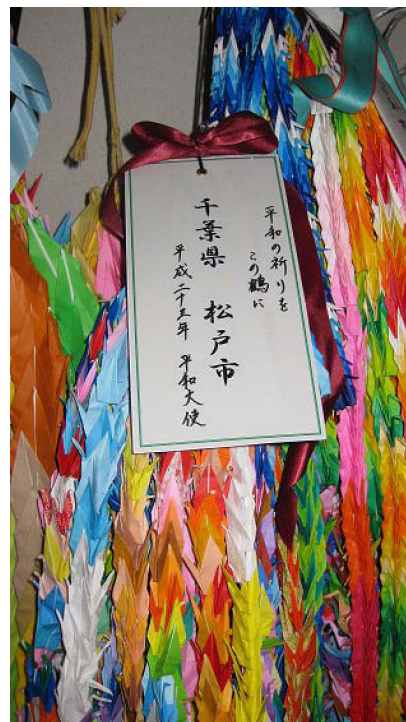 平和の祈りを
この鶴に
千葉県 松戸市
平成二十五年 平和大使